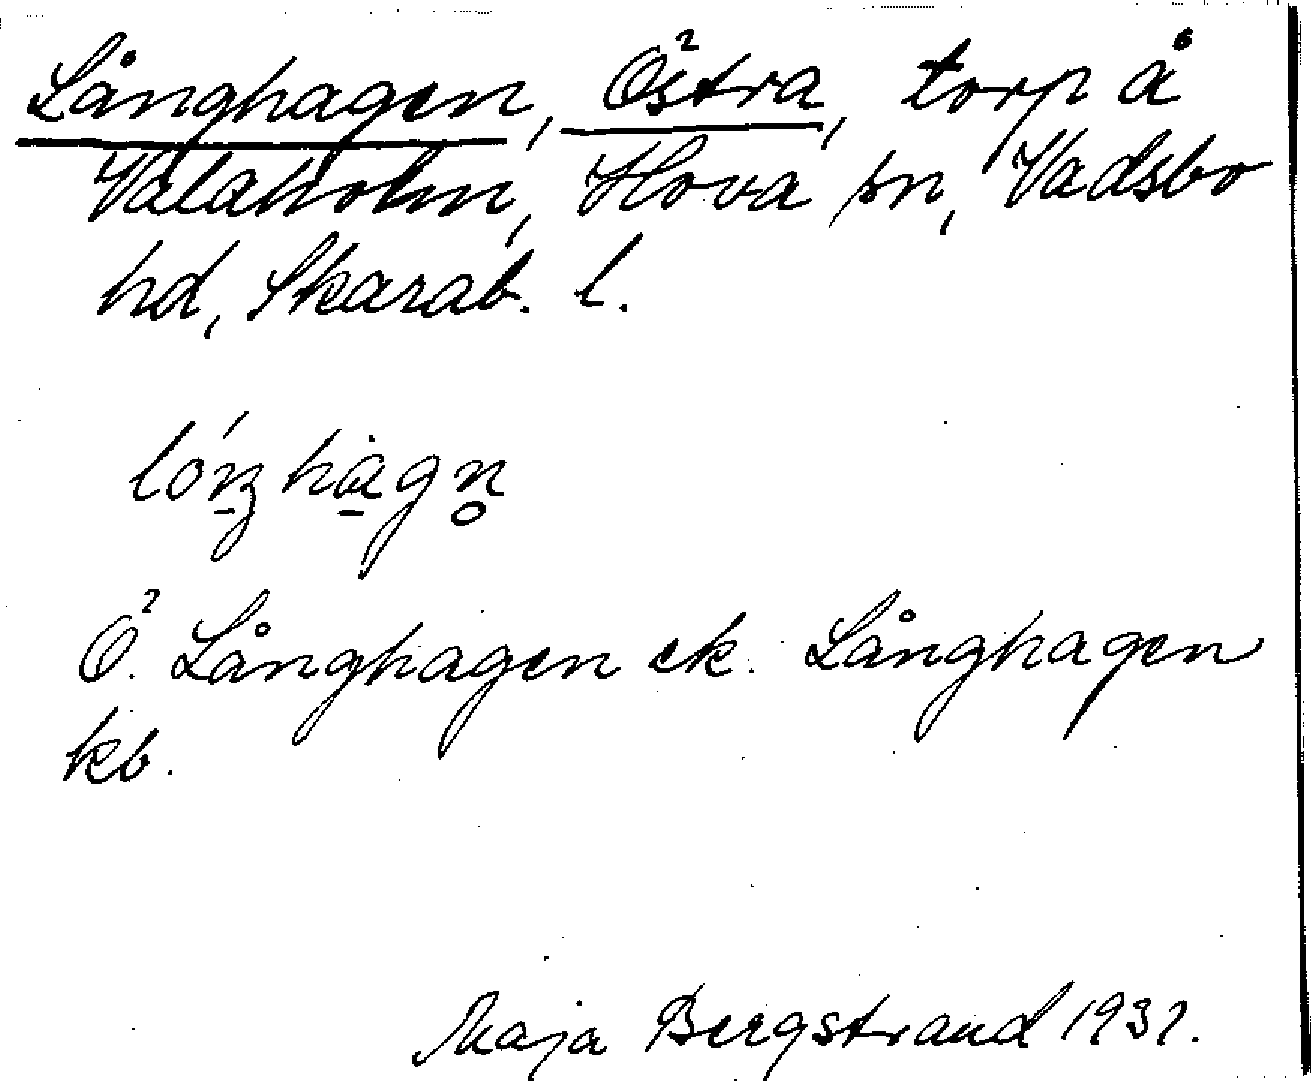 Långhagen, Östra, torp å
Valaholm, Hova sn, Vadsbo
hd, Skarab. l.
Ö. Långhagen ek. Långhagen
kb.
Maja Bergstrand 1931.